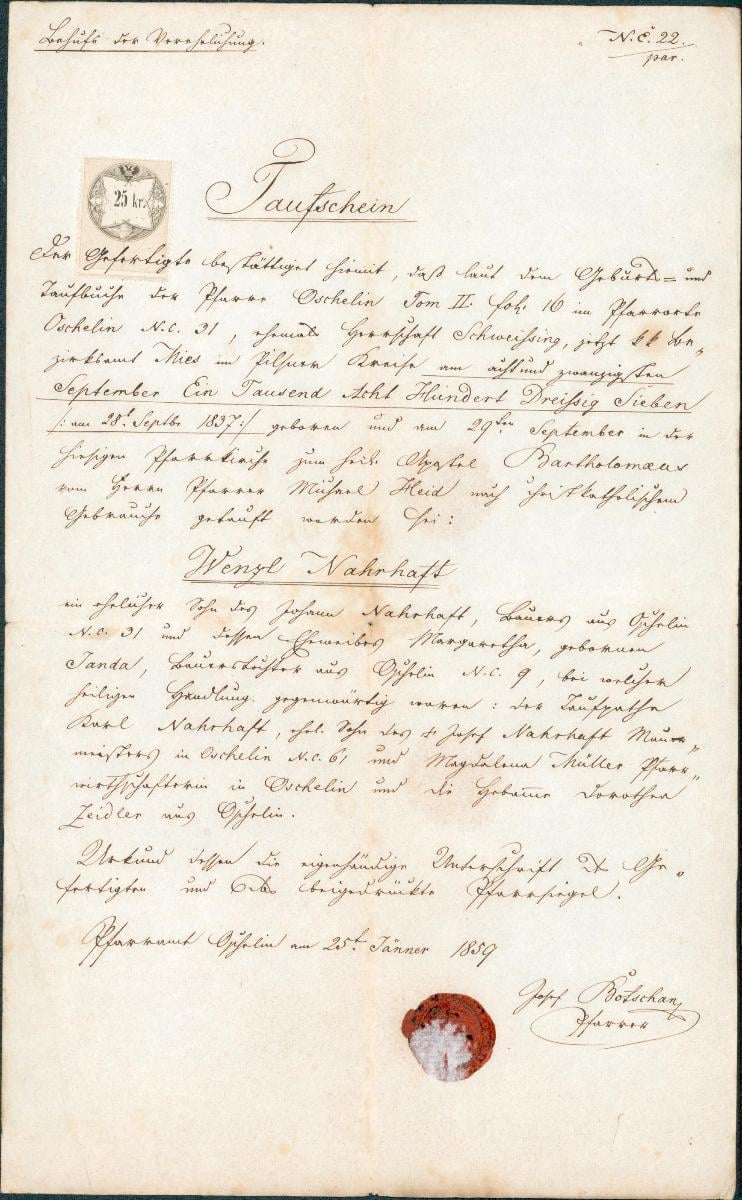 Behufs der Verehelichung.
N. E. 22.
par.
25 kr.
Taufschein
Der Gefertigte bestättiget hiemit, daß laut dem Geburts= und
Taufbuche der Pfarre Oschelin Tom II. fol. 16 im Pfarrorte
Oschelin N.C. 31, ehemals Herrschaft Schweissing, jetzt kk Be„
zirksamt Mies im Pilsner Kreise am acht und zwanzigsten
September Ein Tausend Acht Hundert Dreissig Sieben
/: am 28t. Septbr 1837 :/ geboren und am 29ten September in der
hiesigen Pfarrkirche zum heil. Apostel Bartholomaeus
vom Herrn Pfarrer Michael Heid nach christkatholischem
Gebrauche getauft worden sei:
Wenzl Nahrhaft
ein ehelicher Sohn des Johann Nahrhaft, Bauers aus Oschelin
N.C. 31 und dessen Eheweibes Margaretha, gebornen
Janda, Bauerstochter aus Oschelin N.C. 9, bei welcher
heiligen Handlung gegenwärtig waren: der Taufpathe
Karl Nahrhaft, ehel. Sohn des † Josef Nahrhaft Maurer„
meisters in Oschelin N.C. 61 und Magdalena Müller Pfarr„
wirthschafterin in Oschelin und die Hebamme Dorothea
Zeidler aus Oschelin.
Urkund dessen die eigenhändige Unterschrift des Ge„
fertigten und das beigedrückte Pfarrsiegel.
Pfarramt Oschelin am 25t. Jänner 1859
Josef Bötschan
Pfarrer